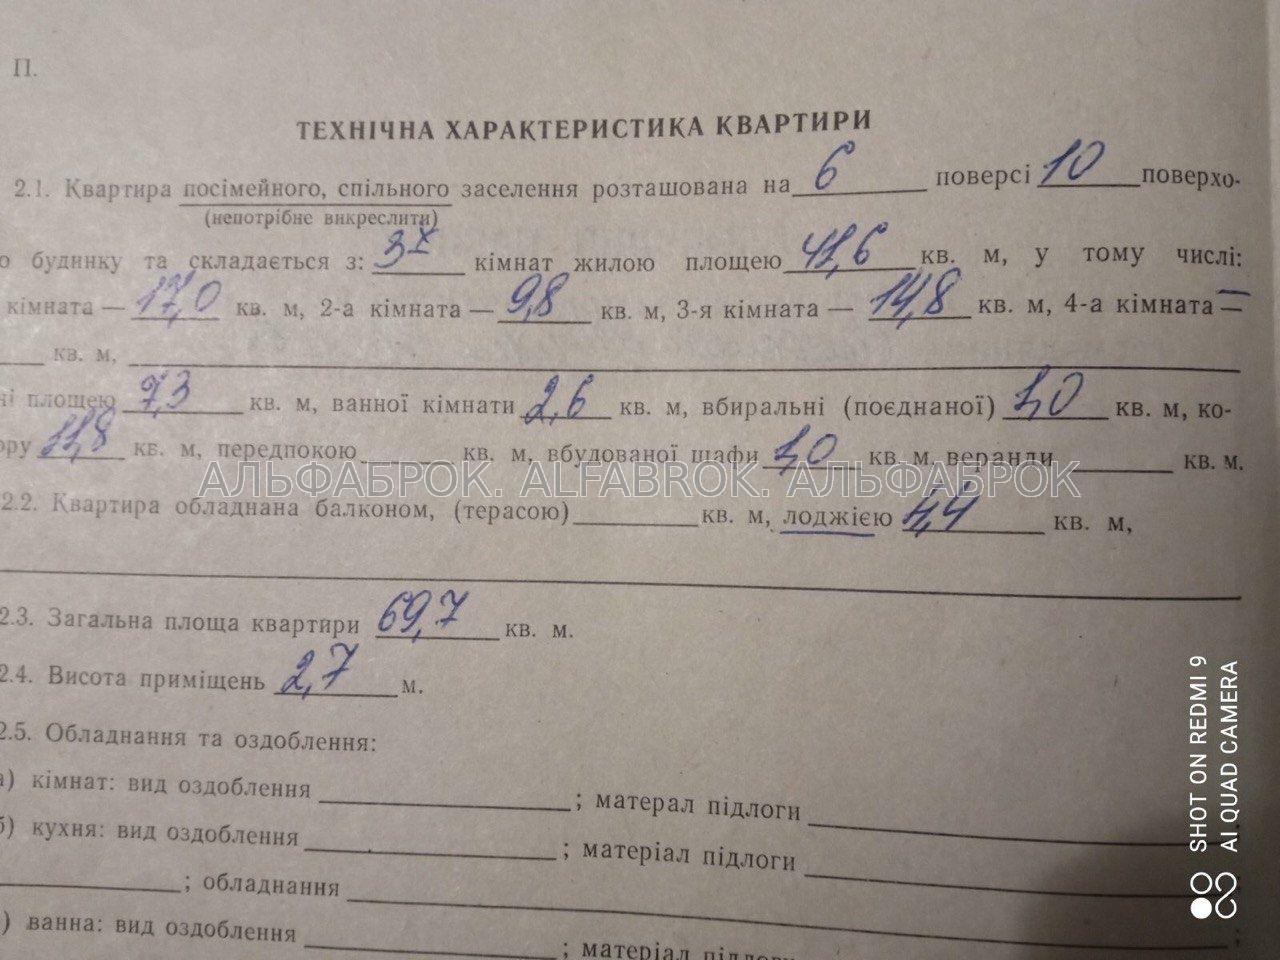 П.
ТЕХНІЧНА ХАРАКТЕРИСТИКА КВАРТИРИ
2.1. Квартира посімейного, спільного заселення розташована на 6 поверсі 10 поверхо-
(непотрібне викреслити)
о будинку та складається з: 3х кімнат жилою площею 41,6 кв. м, у тому числі:
кімната — 17,0 кв. м, 2-а кімната — 9,8 кв. м, 3-я кімната — 14,8 кв. м, 4-а кімната —
кв. м,
ні площею 7,3 кв. м, ванної кімнати 2,6 кв. м, вбиральні (поєднаної) 1,0 кв. м, ко-
ору 11,8 кв. м, передпокою кв. м, вбудованої шафи 1,0 кв. м, веранди кв. м.
АЛЬФАБРОК. ALFABROK. АЛЬФАБРОК
2.2. Квартира обладнана балконом, (терасою) кв. м, лоджією 4,4 кв. м,
2.3. Загальна площа квартири 69,7 кв. м.
2.4. Висота приміщень 2,7 м.
2.5. Обладнання та оздоблення:
а) кімнат: вид оздоблення ; матерал підлоги
б) кухня: вид оздоблення ; матеріал підлоги
; обладнання ;
) ванна: вид оздоблення ; матеріал підлоги
SHOT ON REDMI 9
AI QUAD CAMERA